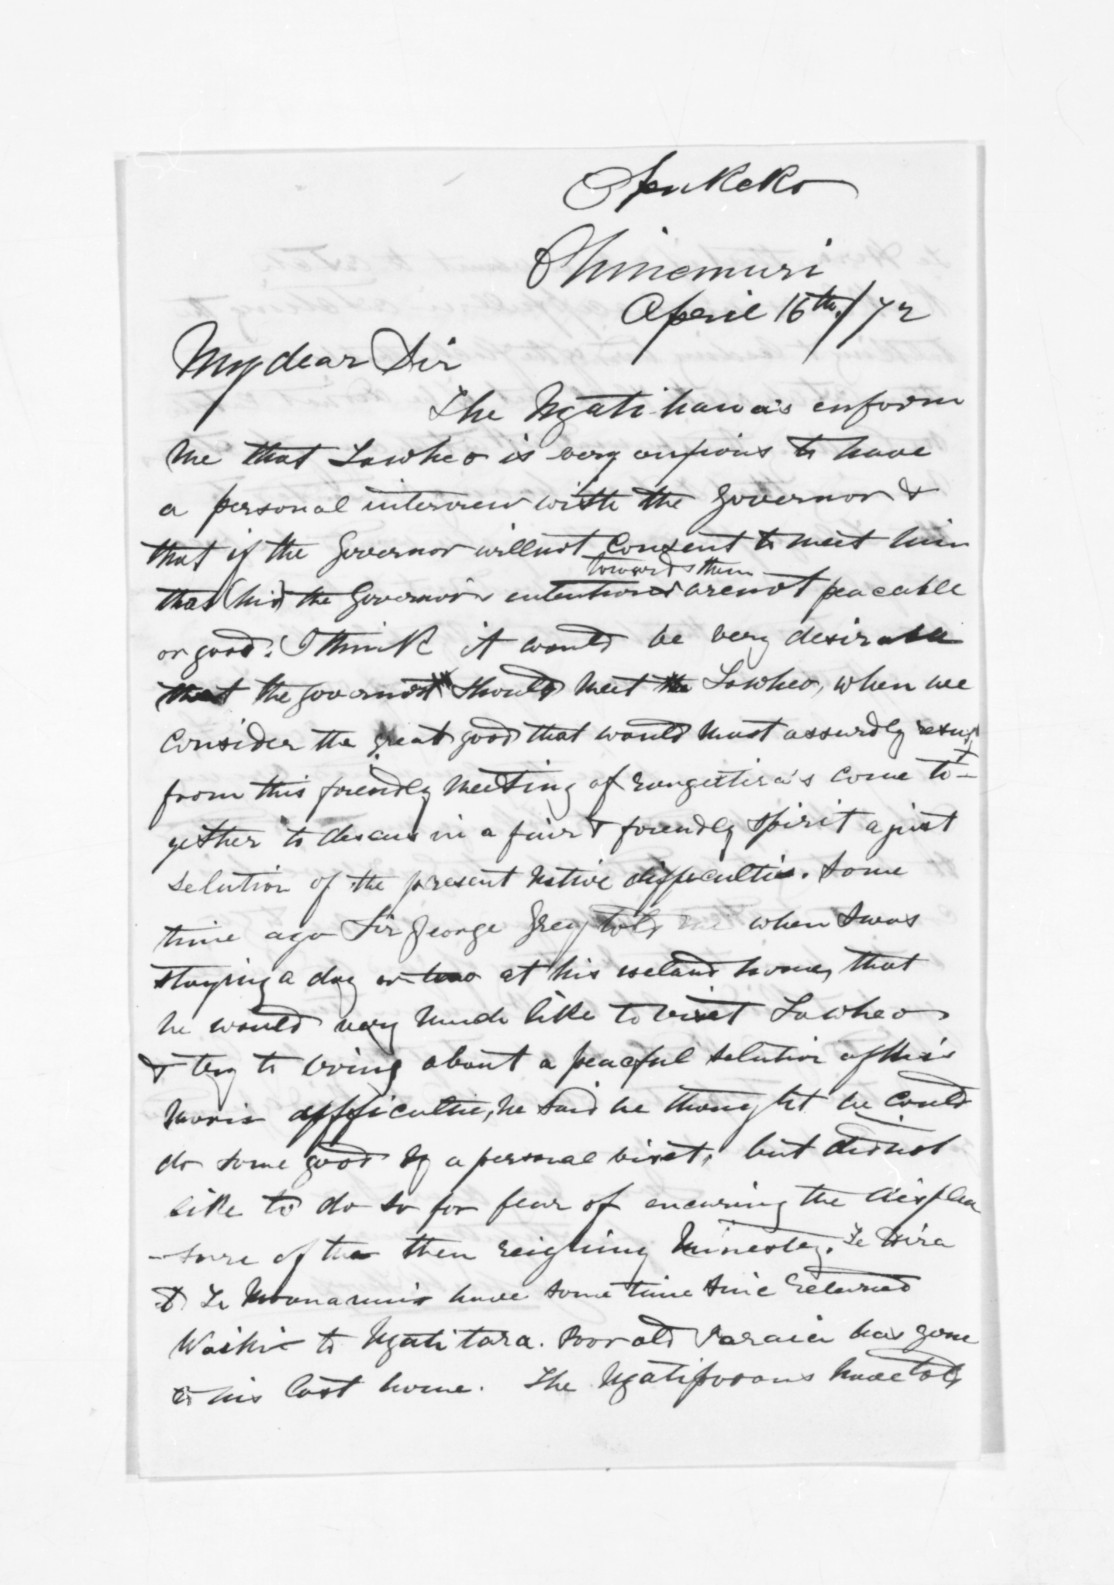 Opukeko
Ohinemuri
April 16th/72
My dear Sir
The Ngatihawa's enform
me that Tawheo is very anxious to have
a personal interview with the Governor &
that if the Governor will not consent to meet him
towards them
that (his) the Governor's intentions are not peacable
or good. I think it would be very desirable
that the governor should meet Tawheo, when we
consider the great good that would must assurdly result
from this friendly meeting of rangitira's come to-
gether to discuss in a fair & friendly spirit a just
selution of the present Native difficultie. Some
time ago Sir George Grey told me when I was
staying a day or two at his iseland home, that
he would very much like to visit Tawheo
& try to bring about a peaceful selution of this
Maori difficultie, he said he thought he could
do some good by a personal visit, but did not
like to do so for fear of encuring the displea
-sure of the then reighning Minestey. Te Hira
& Te Moananui have some time sinc returned
Waihi to Ngatitara. Poor old Taraia has gone
to his last home. The Ngatiporous have told